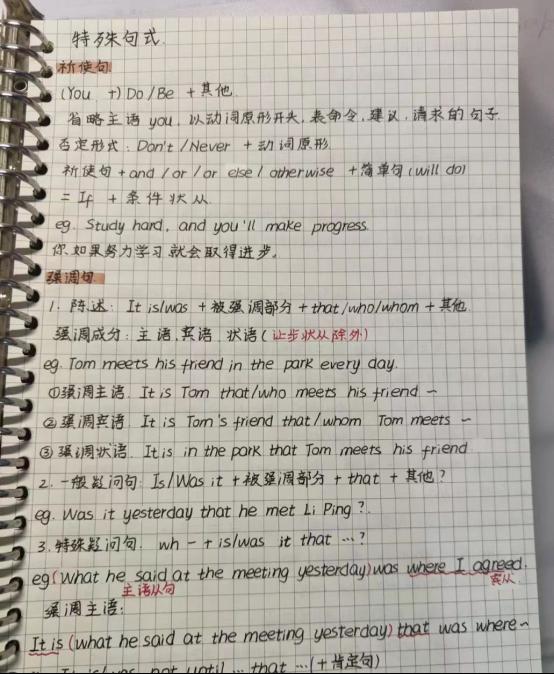 特殊句式.
祈使句.
(You +) Do/Be + 其他.
省略主语 you, 以动词原形开头, 表命令, 建议, 请求的句子
否定形式: Don't/Never + 动词原形.
祈使句 + and / or / or else / otherwise + 简单句 (will do)
= If + 条件状从.
eg. Study hard, and you'll make progress.
你如果努力学习就会取得进步。
强调句.
1. 陈述: It is/was + 被强调部分 + that/who/whom + 其他.
强调成分: 主语, 宾语, 状语 (让步状从除外)
eg. Tom meets his friend in the park every day.
①强调主语. It is Tom that/who meets his friend ~
②强调宾语. It is Tom's friend that/whom Tom meets ~
③强调状语. It is in the park that Tom meets his friend
2. 一般疑问句: Is/Was it + 被强调部分 + that + 其他?
eg. Was it yesterday that he met Li Ping?
3. 特殊疑问句. wh- + is/was it that …?
eg (What he said at the meeting yesterday) was where I agreed.
主语从句 宾从.
强调主语:
It is (what he said at the meeting yesterday) that was where~
It is/was not until … that … (+ 肯定句)